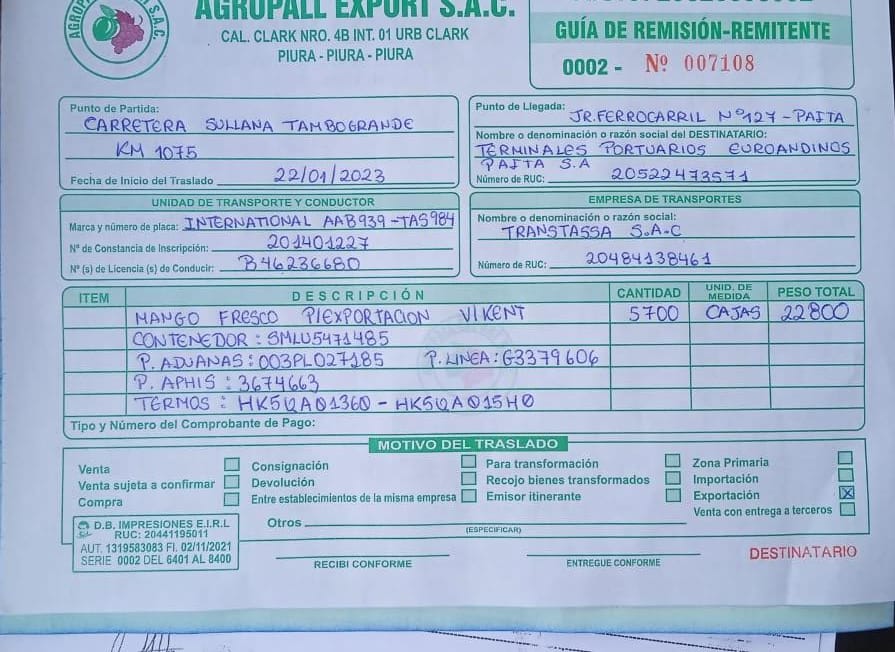 AGROPALL EXPORT S.A.C.
CAL. CLARK NRO. 4B INT. 01 URB CLARK
PIURA - PIURA - PIURA
GUÍA DE REMISIÓN-REMITENTE
0002 - Nº 007108
Punto de Partida:
CARRETERA SULLANA TAMBOGRANDE
KM 1075
Fecha de Inicio del Traslado 22/01/2023
Punto de Llegada: JR.FERROCARRIL Nº127-PAITA
Nombre o denominación o razón social del DESTINATARIO:
TERMINALES PORTUARIOS EUROANDINOS
PAITA S.A
Número de RUC: 20522473571
UNIDAD DE TRANSPORTE Y CONDUCTOR
Marca y número de placa: INTERNATIONAL AAB939-TAS984
Nº de Constancia de Inscripción: 201401227
Nº (s) de Licencia (s) de Conducir: B46236680
EMPRESA DE TRANSPORTES
Nombre o denominación o razón social:
TRANSTASSA S.A.C
Número de RUC: 20484138461
ITEM DESCRIPCIÓN CANTIDAD UNID. DE MEDIDA PESO TOTAL
MANGO FRESCO P/EXPORTACION VIKENT 5700 CAJAS 22800
CONTENEDOR: SMLU5471485
P. ADUANAS: 003PL027185 P. LINEA: G3379606
P. APHIS : 3674663
TERMOS : HK5QA01360 - HK5QA015H0
Tipo y Número del Comprobante de Pago:
MOTIVO DEL TRASLADO
Venta
Venta sujeta a confirmar
Compra
Consignación
Devolución
Entre establecimientos de la misma empresa
Para transformación
Recojo bienes transformados
Emisor itinerante
Zona Primaria
Importación
Exportación X
Venta con entrega a terceros
Otros
(ESPECIFICAR)
D.B. IMPRESIONES E.I.R.L
RUC: 20441195011
AUT. 1319583083 FI. 02/11/2021
SERIE 0002 DEL 6401 AL 8400
RECIBI CONFORME
ENTREGUE CONFORME
DESTINATARIO